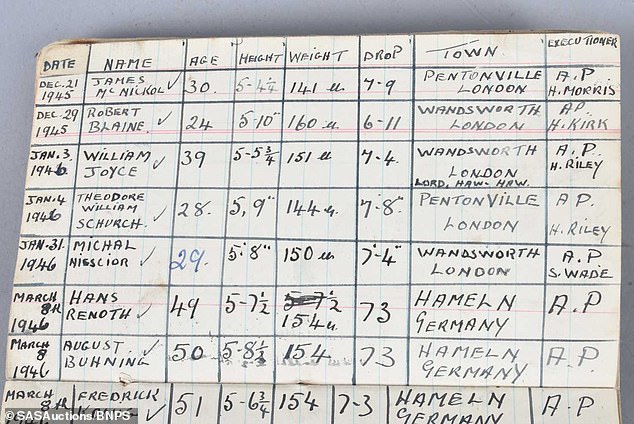 DATE NAME AGE HEIGHT WEIGHT DROP TOWN EXECUTIONER
DEC. 21 1945 JAMES McNICKOL ✓ 30. 5-4½ 141 lb 7-9 PENTONVILLE LONDON A.P. H. MORRIS
DEC. 29 1945 ROBERT BLAINE. ✓ 24 5-10" 160 lb 6-11 WANDSWORTH LONDON AP. H. KIRK
JAN. 3. 1946 WILLIAM JOYCE ✓ 39 5-5¾ 151 lb 7-4. WANDSWORTH LONDON LORD, HAW-HAW. A.P. H. RILEY
JAN. 4 1946 THEODORE WILLIAM SCHURCH. ✓ 28. 5, 9" 144 lb 7-8" PENTONVILLE LONDON A P. H. RILEY
JAN. 31. 1946 MICHAL NIESCIOR ✓ 29. 5-8" 150 lb 7-4" WANDSWORTH LONDON A.P S. WADE
MARCH 8th 1946 HANS RENOTH ✓ 49 5-7½ 154 lb 73 HAMELN GERMANY A.P
MARCH 8 1946 AUGUST. BUHNING ✓ 50 5-8½ 154 73 HAMELN GERMANY A.P.
MARCH 8th 1946 FREDRICK ✓ 51 5-6¾ 154 7-3 HAMELN GERMANY A.P
© SASAuctions/BNPS